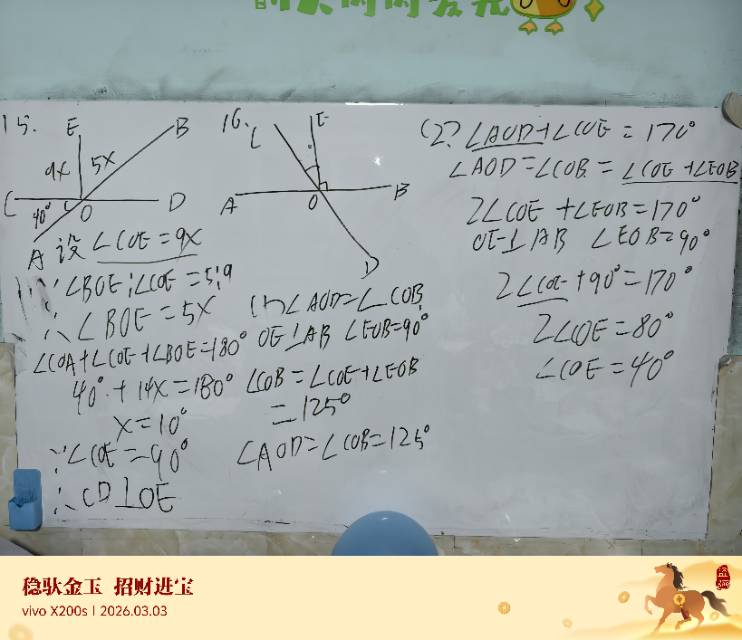 15.
E
B
9x
5x
C
40°
O
D
A
设∠COE=9x
∵∠BOE:∠COE=5:9
∴∠BOE=5x
∠COA+∠COE+∠BOE=180°
40°+14x=180°
x=10°
∵∠COE=90°
∴CD⊥OE
16.
C
E
A
O
B
D
(1)∠AOD=∠COB
OE⊥AB ∠EOB=90°
∠COB=∠COE+∠EOB
=125°
∠AOD=∠COB=125°
(2)∠AOD+∠COE=170°
∠AOD=∠COB=∠COE+∠EOB
2∠COE+∠EOB=170°
OE⊥AB ∠EOB=90°
2∠COE+90°=170°
2∠COE=80°
∠COE=40°
稳驮金玉 招财进宝
vivo X200s | 2026.03.03